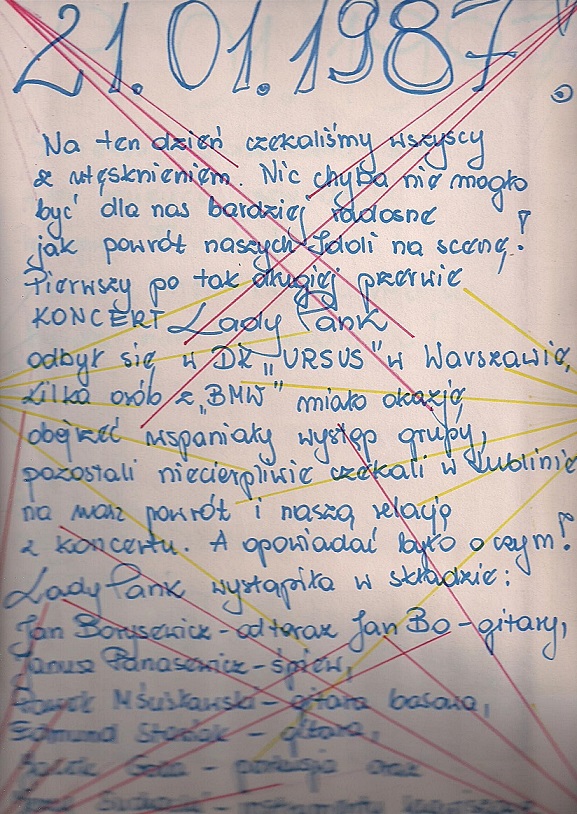 21.01.1987!
Na ten dzień czekaliśmy wszyscy
z utęsknieniem. Nic chyba nie mogło
być dla nas bardziej radosne
jak powrót naszych Idoli na scenę!
Pierwszy po tak długiej przerwie
KONCERT Lady Pank
odbył się w DK „URSUS" w Warszawie,
kilka osób z „BMW" miało okazję
obejrzeć wspaniały występ grupy,
pozostali niecierpliwie czekali w Lublinie
na nasz powrót i naszą relację
z koncertu. A opowiadać było o czym!
Lady Pank wystąpiła w składzie:
Jan Borysewicz - od teraz Jan Bo - gitary,
Janusz Panasewicz - śpiew,
Paweł Mścisławski - gitara basowa,
Edmund Stasiak - gitara,
- perkusja oraz
- instrumenty